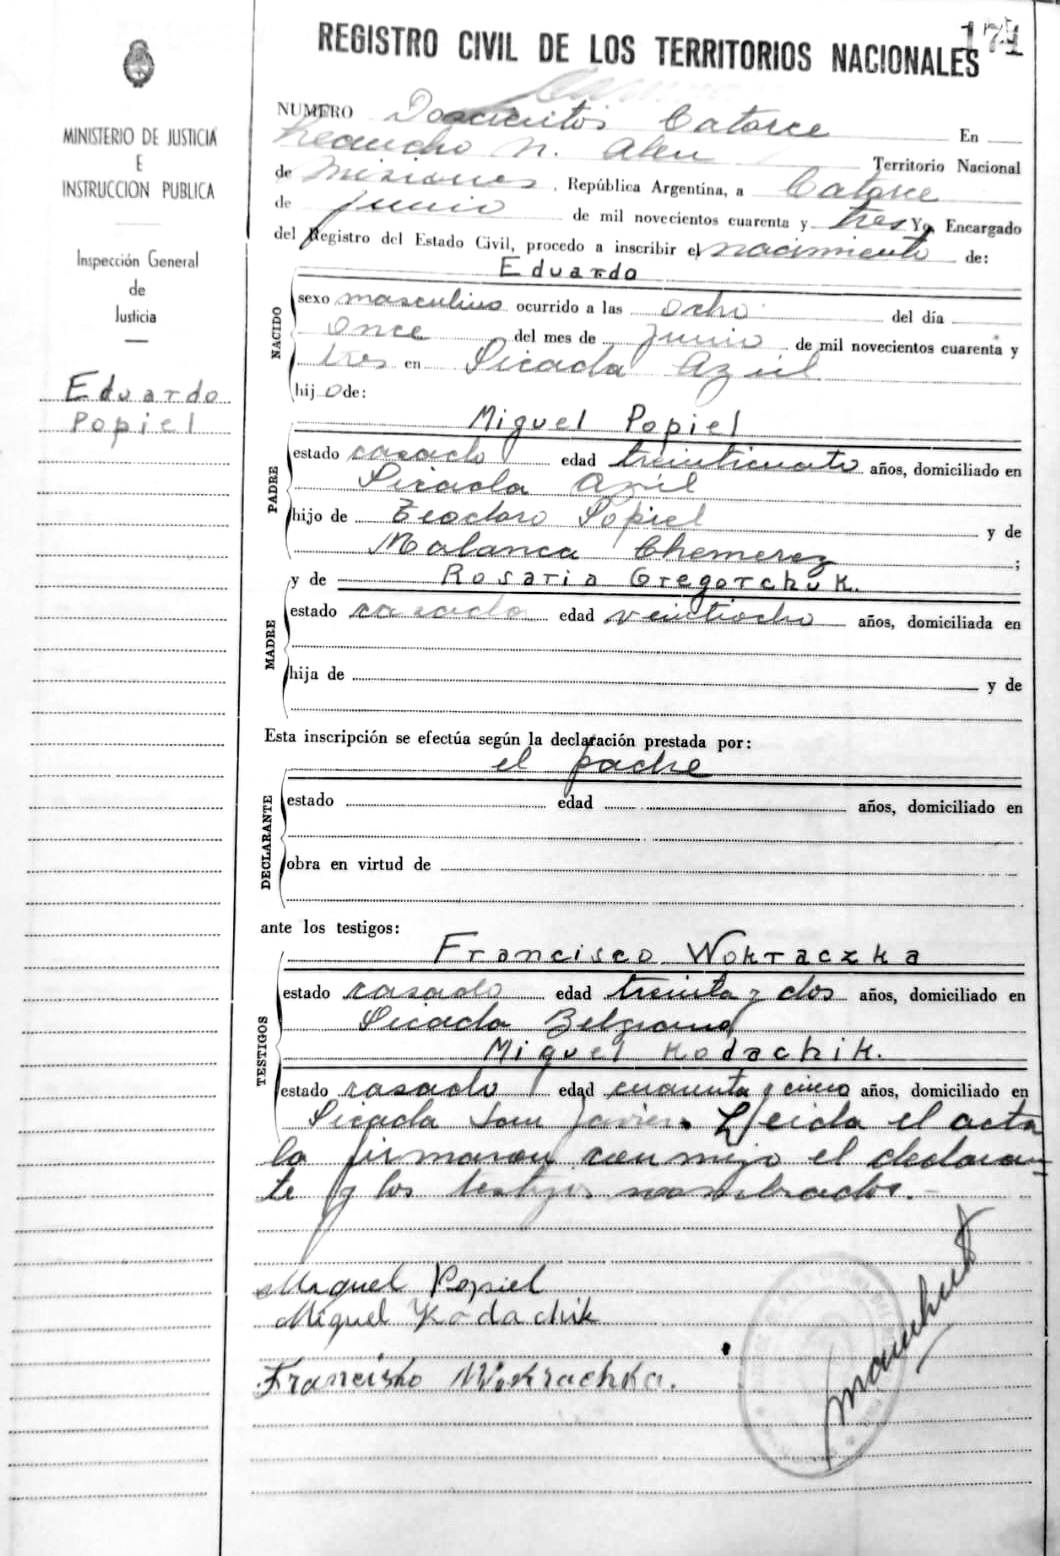 171
REGISTRO CIVIL DE LOS TERRITORIOS NACIONALES
MINISTERIO DE JUSTICIA
E
INSTRUCCION PUBLICA
Inspección General
de
Justicia
Eduardo
Popiel
NUMERO Doscientos Catorce En
Leandro N. Alem Territorio Nacional
de Misiones, República Argentina, a Catorce
de junio de mil novecientos cuarenta y tres Yo, Encargado
del Registro del Estado Civil, procedo a inscribir el nacimiento de:
Eduardo
NACIDO
sexo masculino ocurrido a las ocho del día
once del mes de junio de mil novecientos cuarenta y
tres en Picada Azul
hijo de:
Miguel Popiel
PADRE
estado casado edad treinticuatro años, domiciliado en
Picada Azul
hijo de Teodoro Popiel y de
Malanca Chemerez ;
y de Rosaria Gregorchuk.
MADRE
estado casada edad veintiocho años, domiciliada en
hija de y de
Esta inscripción se efectúa según la declaración prestada por:
el padre
DECLARANTE
estado edad años, domiciliado en
obra en virtud de
ante los testigos:
Francisco Wokraczka
TESTIGOS
estado casado edad treinta y dos años, domiciliado en
Picada Belgrano
Miguel Kodachik.
estado casado edad cuarenta y cinco años, domiciliado en
Picada San Javier. Leida el acta
la firmaron conmigo el declaran-
te y los testigos nombrados.-
Miguel Popiel
Miguel Kodachik
Francisko Wokrachka.